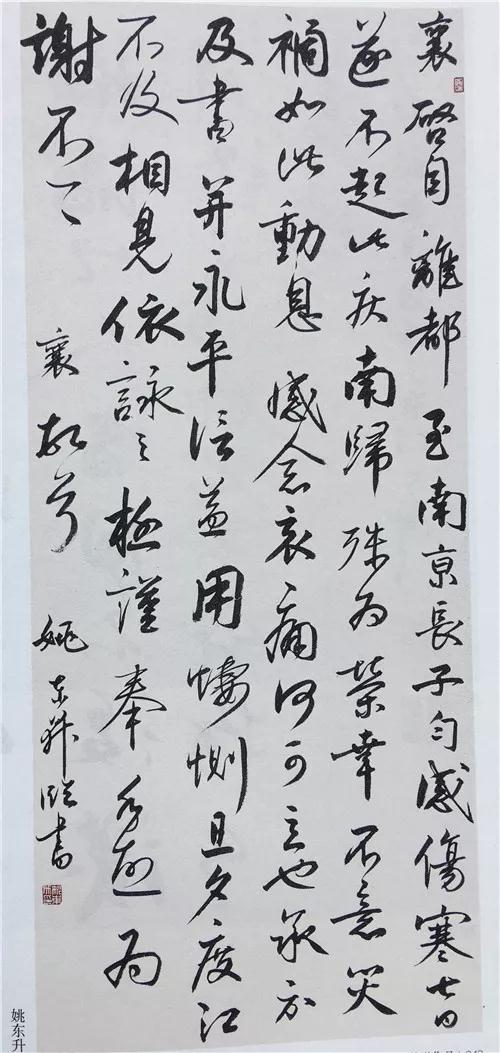 襄啓自離都至南京長子匀感傷寒七日
遂不起此疾南歸殊為榮幸不意災
禍如此動息感念哀痛何可言也承示
及書并永平信益用悽惻旦夕度江
不及相見依詠之極謹奉手啓為
謝不一一 襄頓首 姚東昇臨書
姚东升